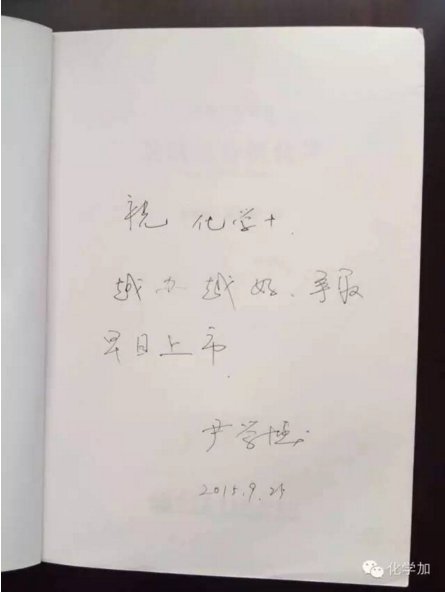 祝 化学+
越办越好、争取
早日上市
尹学
2015.9.25
化学加